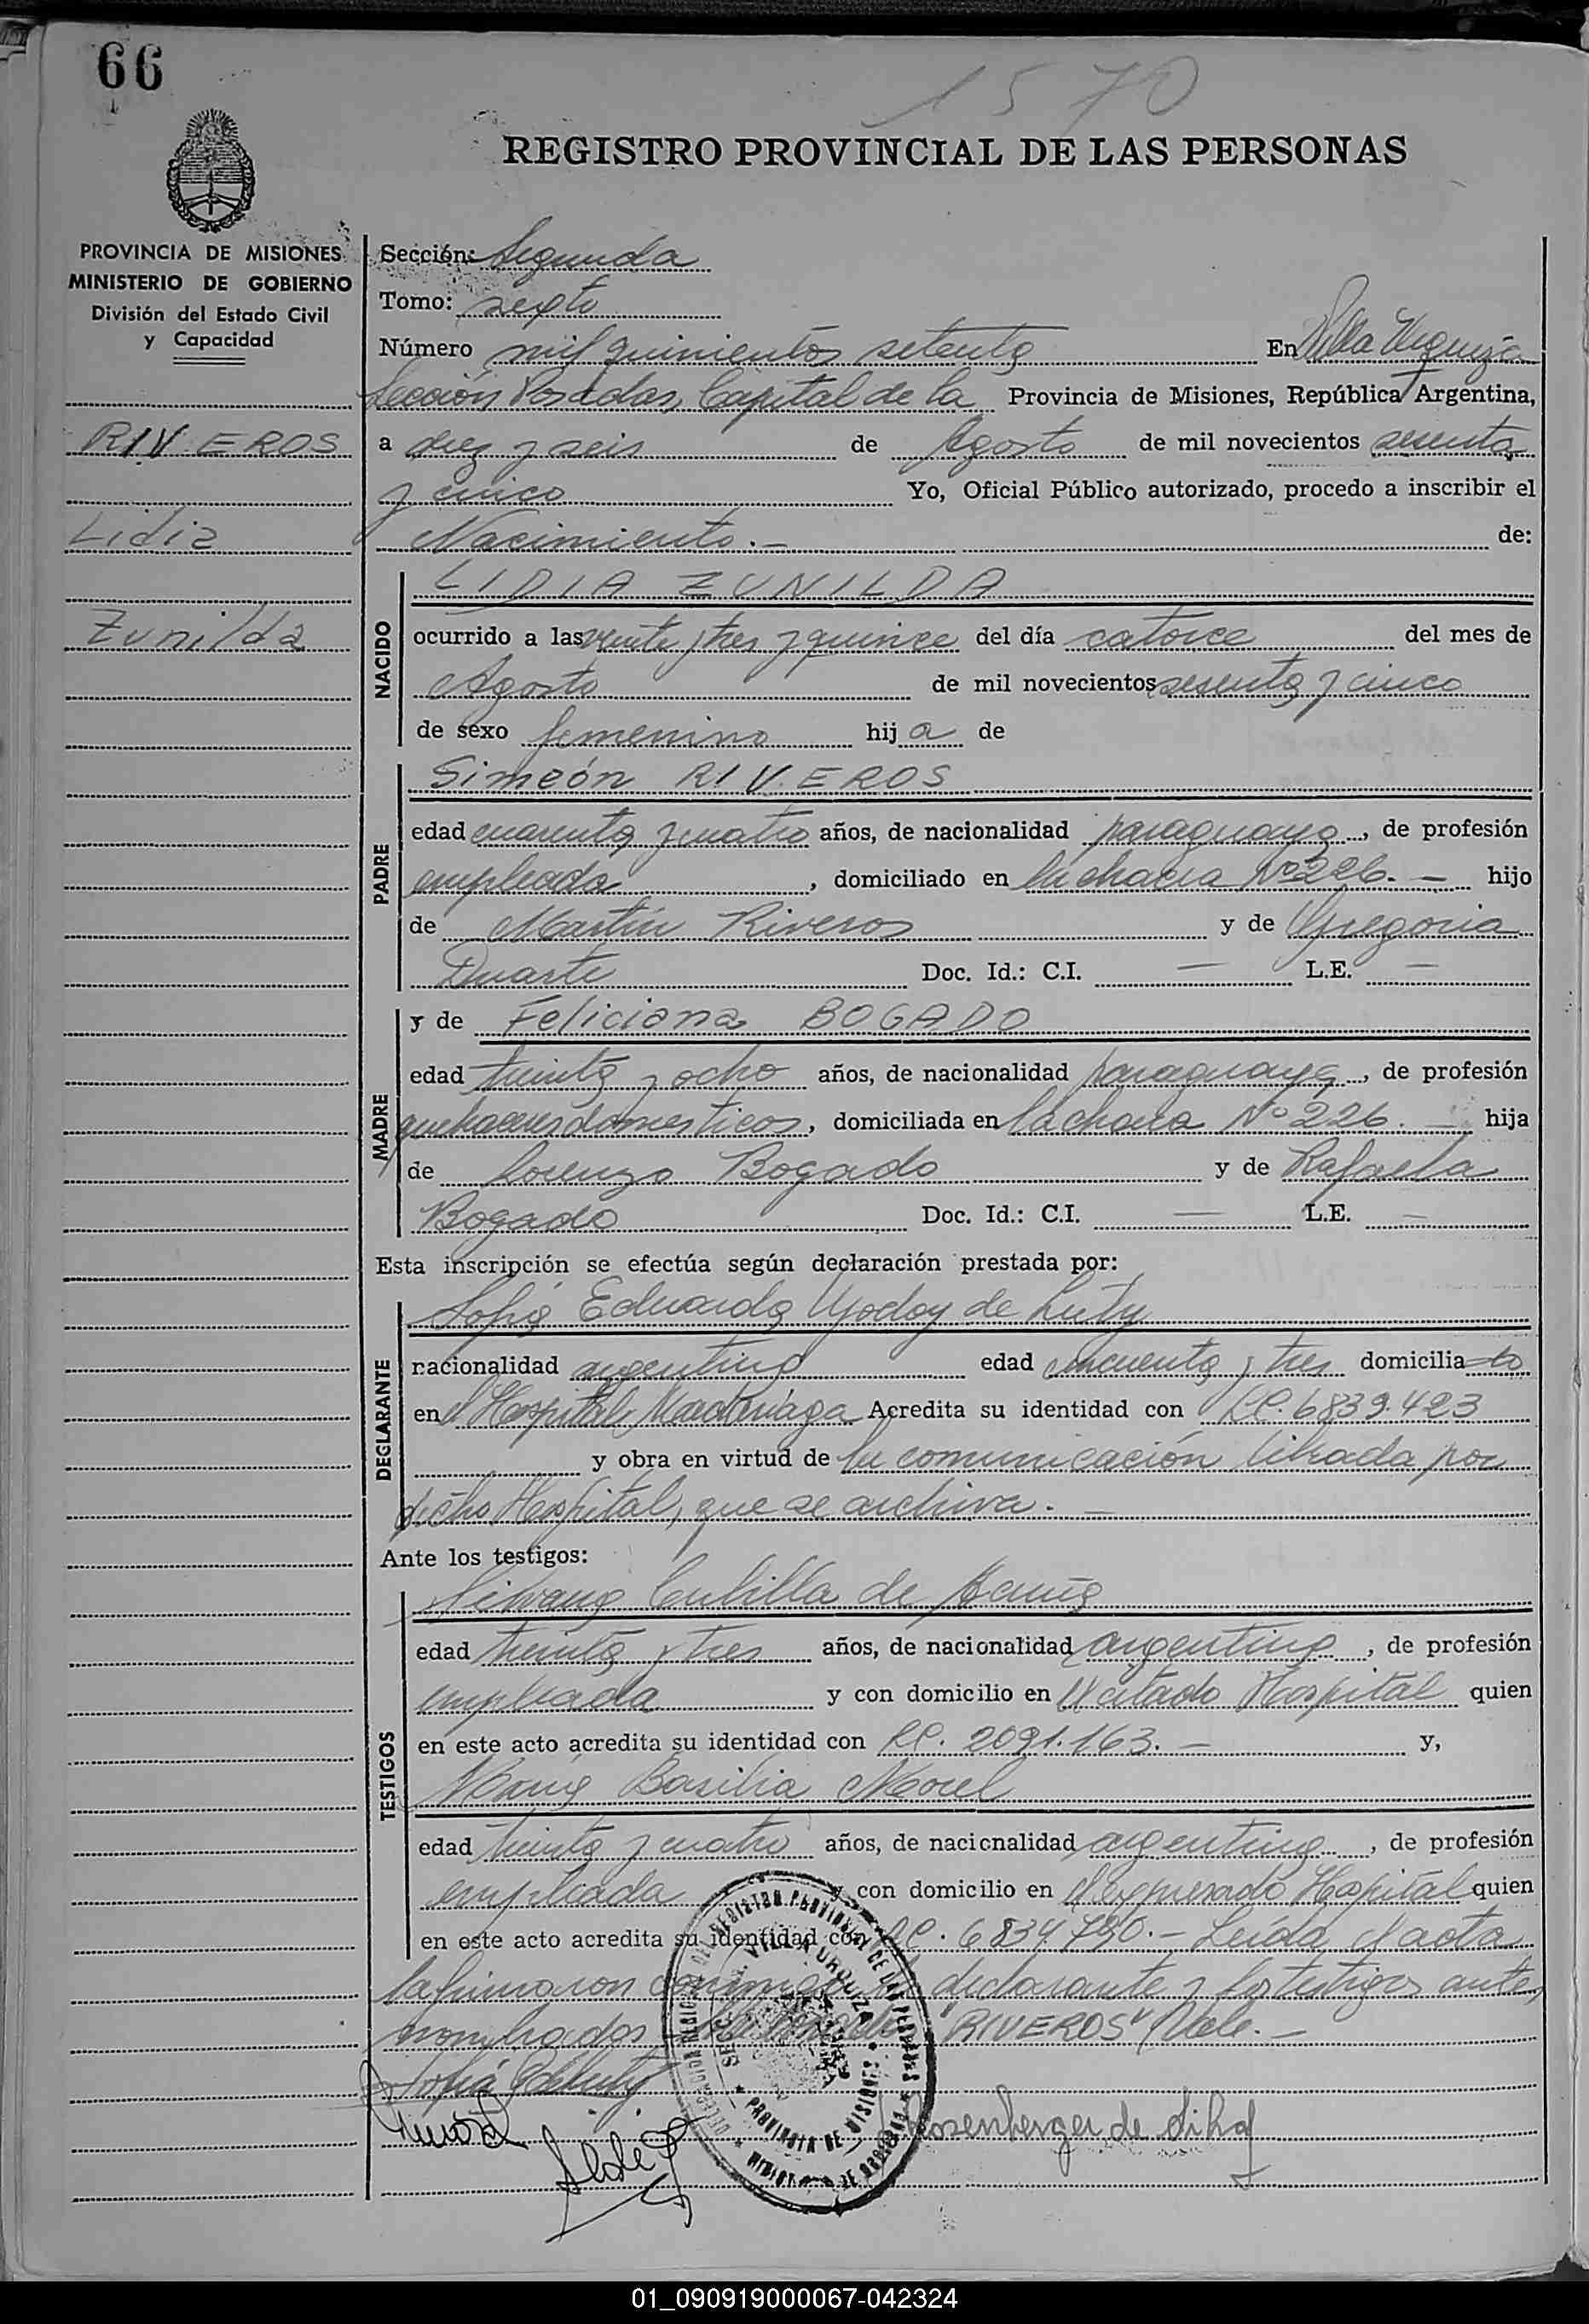 66
1570
REGISTRO PROVINCIAL DE LAS PERSONAS
PROVINCIA DE MISIONES
MINISTERIO DE GOBIERNO
División del Estado Civil
y Capacidad
RIVEROS
Lidia
Zunilda
Sección: Segunda
Tomo: sexto
Número mil quinientos setenta En Villa Urquiza
Sección Posadas, Capital de la Provincia de Misiones, República Argentina,
a diez y seis de Agosto de mil novecientos sesenta
y cinco Yo, Oficial Público autorizado, procedo a inscribir el
Nacimiento.- de:
NACIDO
LIDIA ZUNILDA
ocurrido a las veinte y tres y quince del día catorce del mes de
Agosto de mil novecientos sesenta y cinco
de sexo femenino hija de
PADRE
Simeón RIVEROS
edad cuarenta y cuatro años, de nacionalidad paraguaya, de profesión
empleado, domiciliado en la chacra Nº 226.- hijo
de Martín Riveros y de Gregoria
Duarte Doc. Id.: C.I. — L.E. —
MADRE
y de Feliciana BOGADO
edad treinta y ocho años, de nacionalidad paraguaya, de profesión
quehaceres domesticos, domiciliada en la chacra Nº 226. hija
de Lorenzo Bogado y de Rafaela
Bogado Doc. Id.: C.I. — L.E. —
Esta inscripción se efectúa según declaración prestada por:
DECLARANTE
Sofía Eduarda Godoy de
nacionalidad argentina edad cincuenta y tres domicilia
en el Hospital Madariaga Acredita su identidad con LC. 6839.423
y obra en virtud de la comunicación librada por
dicho Hospital, que se archiva.-
Ante los testigos:
TESTIGOS
Silvana Cubilla de
edad treinta y tres años, de nacionalidad argentina, de profesión
empleada y con domicilio en el citado Hospital quien
en este acto acredita su identidad con LC. 2091.163.- y,
María Basilia Morel
edad treinta y cuatro años, de nacionalidad argentina, de profesión
empleada y con domicilio en el expresado Hospital quien
en este acto acredita su identidad con LC. 6834790.- Leída el acta
la firmaron conmigo el declarante y los testigos ante
nombrados "RIVEROS" Vale.-
SECC. VILLA URQUIZA
PROVINCIA DE MISIONES
Rosenberger de
01_090919000067-042324